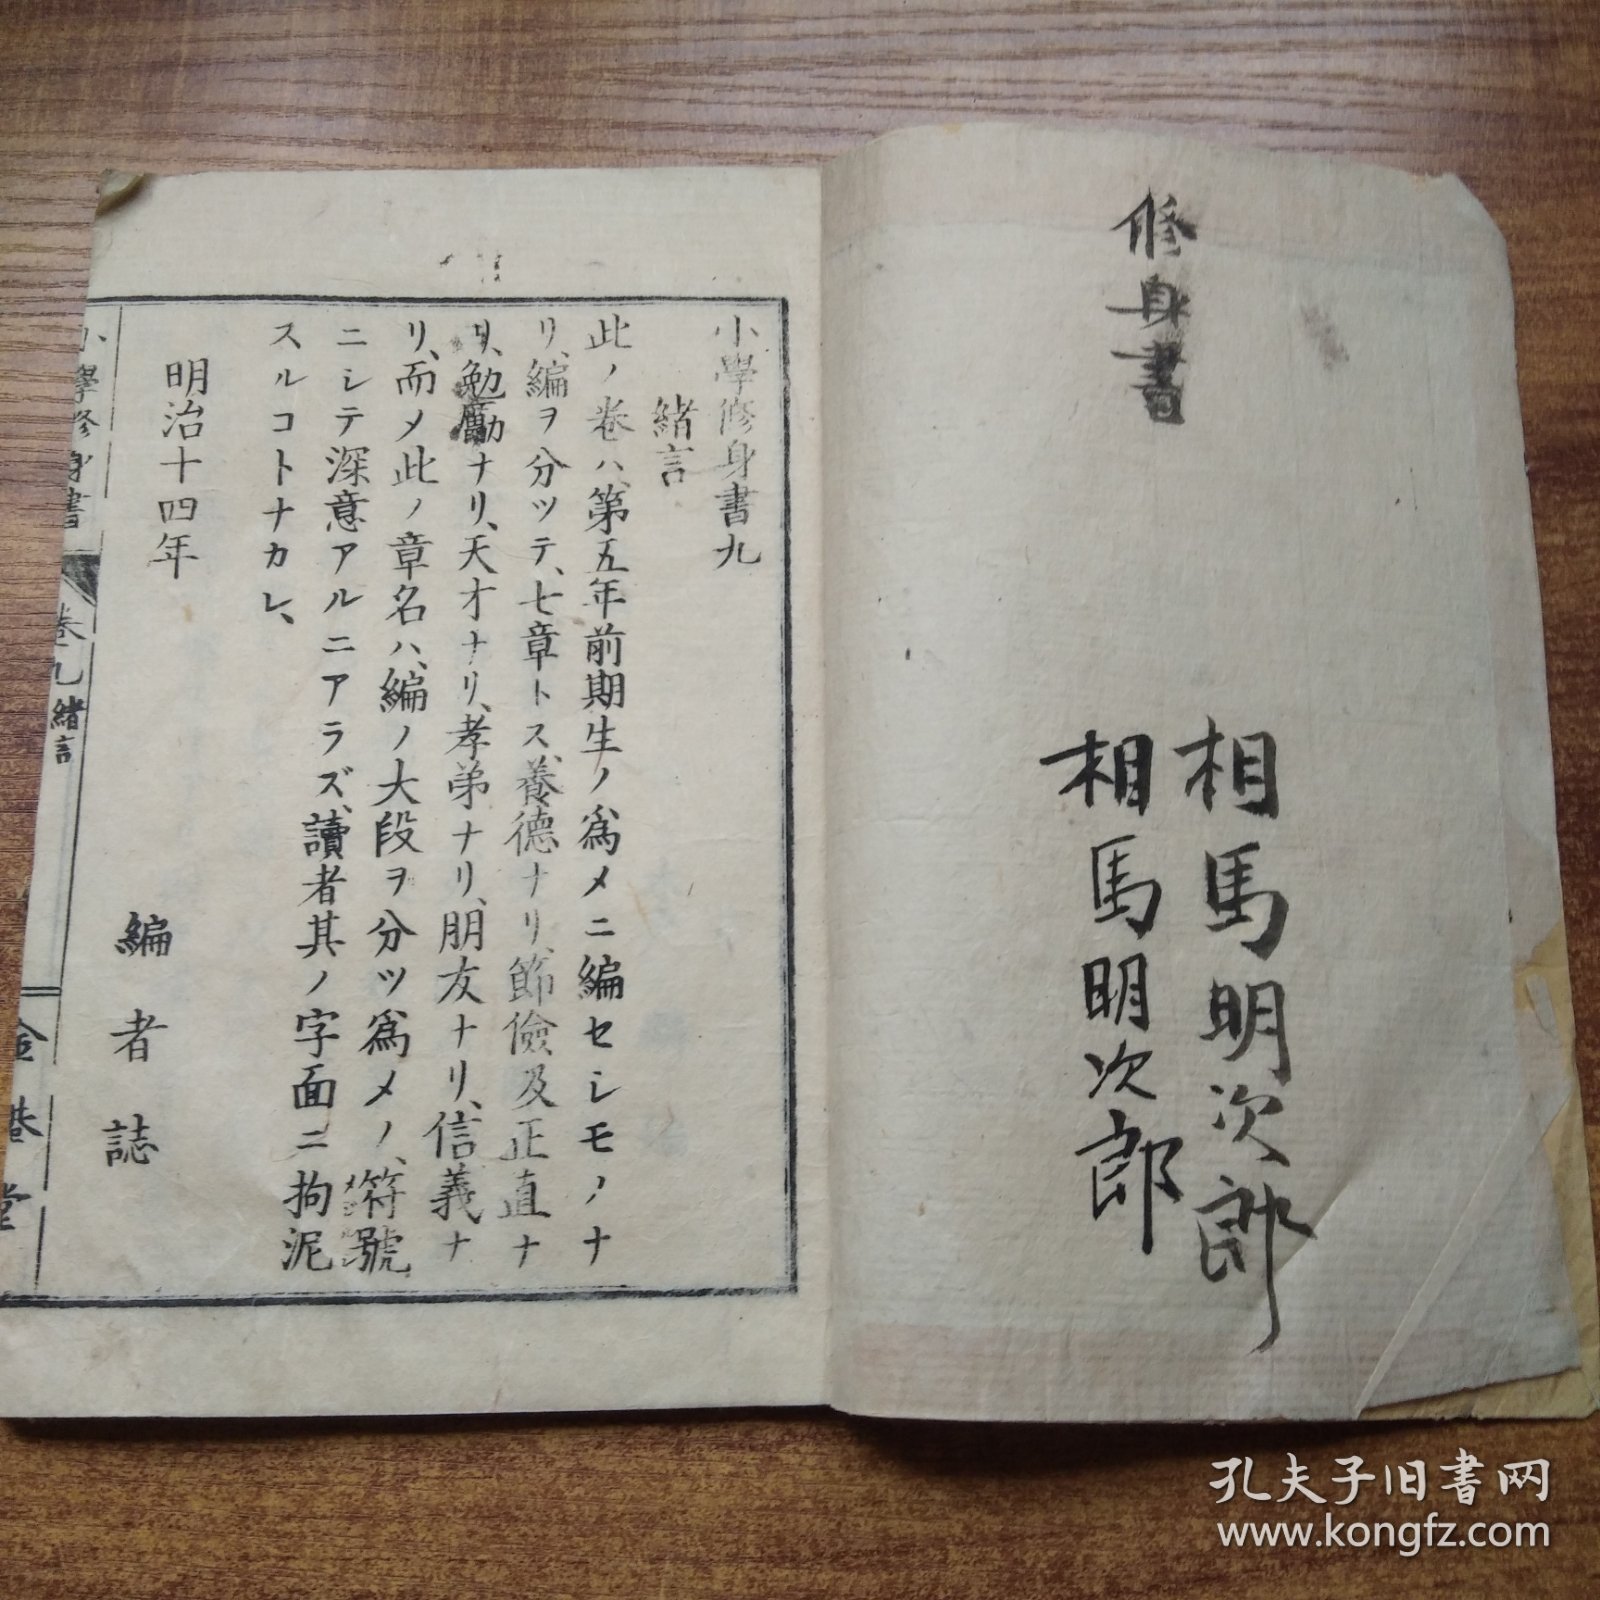 修身書
相馬明次郎
相馬明次郎
小學修身書九
緒言
此ノ巻ハ、第五年前期生ノ爲メニ編セシモノナ
リ、編ヲ分ツテ、七章トス、養德ナリ、節儉及正直ナ
リ、勉勵ナリ、天才ナリ、孝弟ナリ、朋友ナリ、信義ナ
リ、而メ此ノ章名ハ、編ノ大段ヲ分ツ爲メノ、符號
ニシテ深意アルニアラズ、讀者其ノ字面ニ拘泥
スルコトナカレ、
明治十四年
編者誌
小學修身書
巻九 緒言
金港堂
孔夫子旧书网
www.kongfz.com